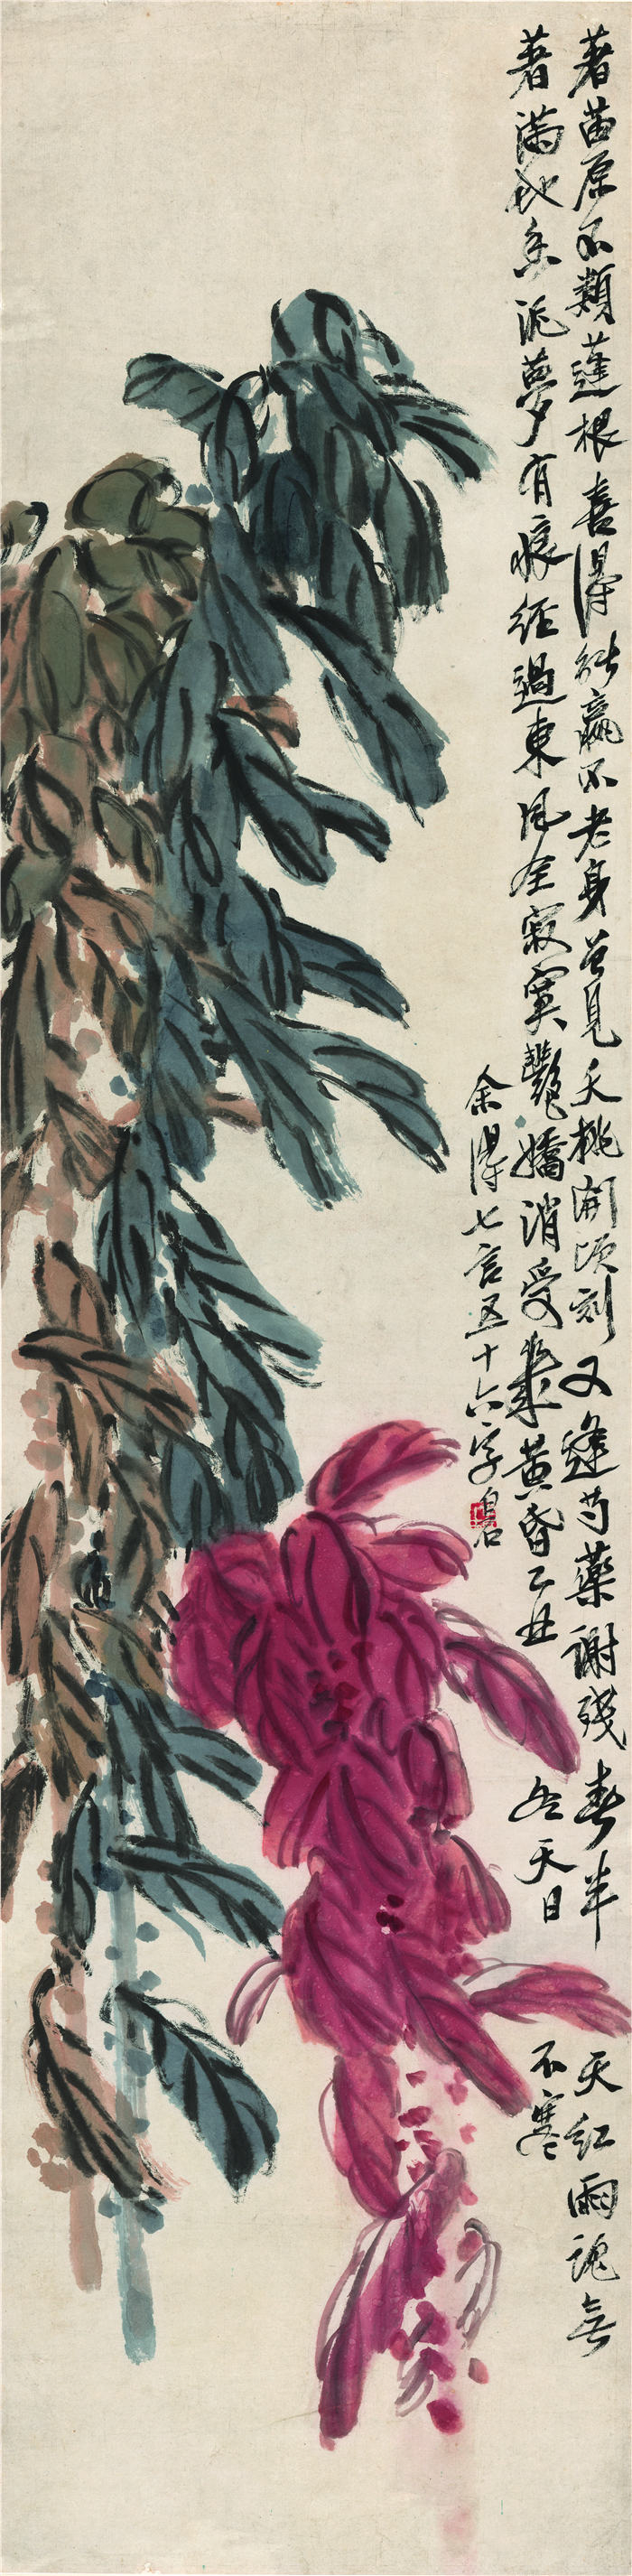 著苗原不類蓬根喜得能贏不老身曾見夭桃開頃刻又逢芍藥謝殘春半天紅雨魂無
著滿地香泥夢有痕經過東風全寂寞艷嬌消受幾黃昏乙丑冬天日不寒
余得七言五十六字白石